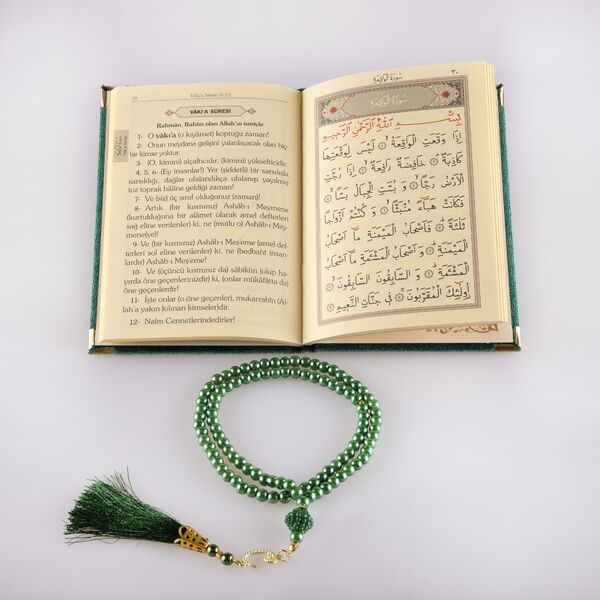 Vâkı'a Sûresi (1-12)
VÂKI'A SÛRESİ
Rahmân, Rahîm olan Allah'ın ismiyle
1- O vâkı'a (o kıyâmet) koptuğu zaman!
2- Onun meydana gelişini yalanlayacak olan hiç-
bir kimse yoktur.
3- (O, kimini) alçaltıcıdır, (kimini) yükselticidir.
4, 5, 6- (Ey insanlar!) Yer (şiddetli) bir sarsılışla
sarsıldığı, dağlar ufalandıkça ufalanıp yayılmış
toz toprak hâline geldiği zaman!
7- Ve (siz) üç sınıf olduğunuz (zaman)!
8- Artık (bir kısmınız) Ashâb-ı Meymene
(kurtulduğuna bir alâmet olarak amel defterleri
sağ eline verilenler) ki, ne (mutlu o) Ashâb-ı Mey-
mene(ye)!
9- Ve (bir kısmınız) Ashâb-ı Meş'eme (amel def-
terleri sol eline verilenler) ki, ne (bedbaht insan-
lardır) Ashâb-ı Meş'eme!
10- Ve (üçüncü kısmınız da) sâbikûn (olup ha-
yırda öne geçenlerinizdir) ki, (onlar mükâfâtta da)
öne geçenlerdir!
11- İşte onlar (o öne geçenler), mukarrabîn (Al-
lah'a yakın kılınan kimseler)dir.
12- Naîm Cennetlerindedirler!
٣٠ سُورَةُ الْوَاقِعَةِ
سُورَةُ الْوَاقِعَةِ
بِسْــــمِ اللّٰهِ الرَّحْمٰنِ الرَّحِيمِ
اِذَا وَقَعَتِ الْوَاقِعَةُ ۝ لَيْسَ لِوَقْعَتِهَا
كَاذِبَةٌ ۝ خَافِضَةٌ رَافِعَةٌ ۝ اِذَا رُجَّتِ
الْاَرْضُ رَجًّا ۝ وَ بُسَّتِ الْجِبَالُ بَسًّا ۝
فَكَانَتْ هَبَٓاءً مُنْبَثًّا ۝ وَ كُنْتُمْ اَزْوَاجًا
ثَلٰثَةً ۝ فَاَصْحَابُ الْمَيْمَنَةِ مَٓا اَصْحَابُ
الْمَيْمَنَةِ ۝ وَ اَصْحَابُ الْمَشْـَٔمَةِ مَٓا اَصْحَابُ
الْمَشْـَٔمَةِ ۝ وَ السَّابِقُونَ السَّابِقُونَ ۝
اُولٰٓئِكَ الْمُقَرَّبُونَ ۝ فِى جَنَّاتِ النَّعِيمِ